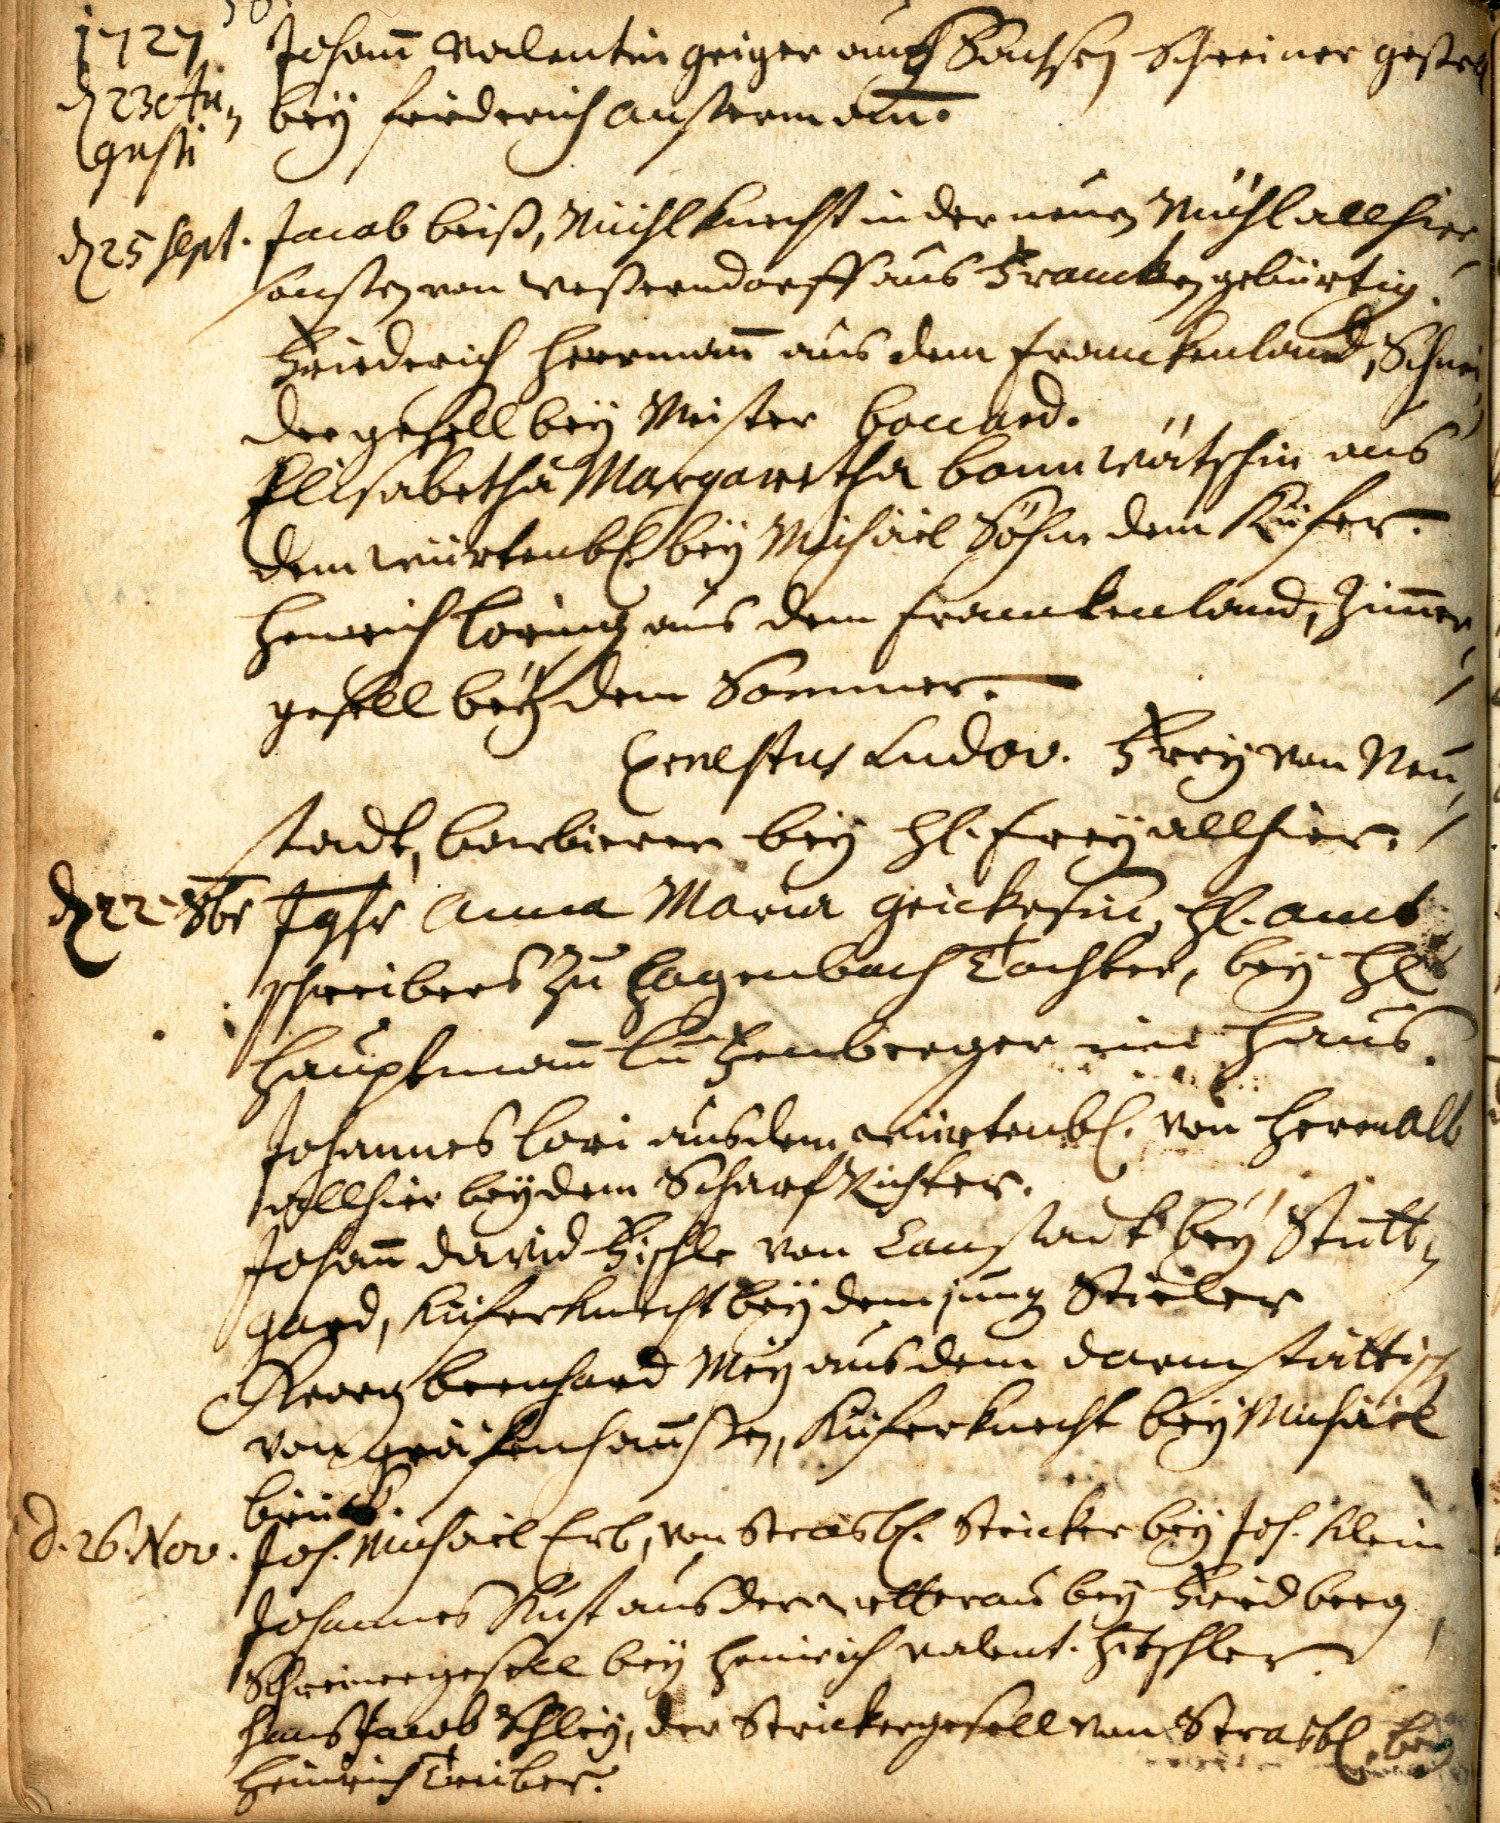 1727 Johann Valentin Geiger auß Sachsen Schreiner gesell
d 23 Au⸗ bey Friederich Austermann.
gusti
d 25 Sept. Jacob beiß, Mühlknecht in der neuen Mühl allhier
sonsten von Westerndorff aus Francken gebürtig.
Friederich Herrmann aus dem Franckenland, Schnei⸗
dergesell bey Meister
Elisabetha Margaretha aus
dem Würtenb. bey Michael Söhn dem Küfer.
Henrich Loring aus dem Franckenland, Zimmer⸗
gesell bey dem Sommer.
Ernestus Ludov. Frey von Neu⸗
stadt, barbierer bey H. Frey allhier.
d 22. 8br Jgfr Anna Maria H. Amt
schreibers zu Hagenbach Tochter, bey H.
Hauptmann Lutzenberger im Haus.
Johannes Lori aus dem Würtenb. von Herrnalb
allhier bey dem Scharf Richter.
Johann David Fischle von Canstadt bey Stutt⸗
gard, Küferknecht bey dem jung Stieler
Georg Bernhard Mey aus dem Darmstättisch
von Gräfenhaussen, Küferknecht bey Michael

d. 26. Nov. Joh. Michael Erb, von Strasb. Stricker bey Joh. Klein
Johannes Rust aus der Wetterau bey Friedberg
Schreinergesell bey Henrich Valent. Hetzler.
Hans Jacob Schley, der Strickergesell von Strasb. bey
Heinrich Treuber.